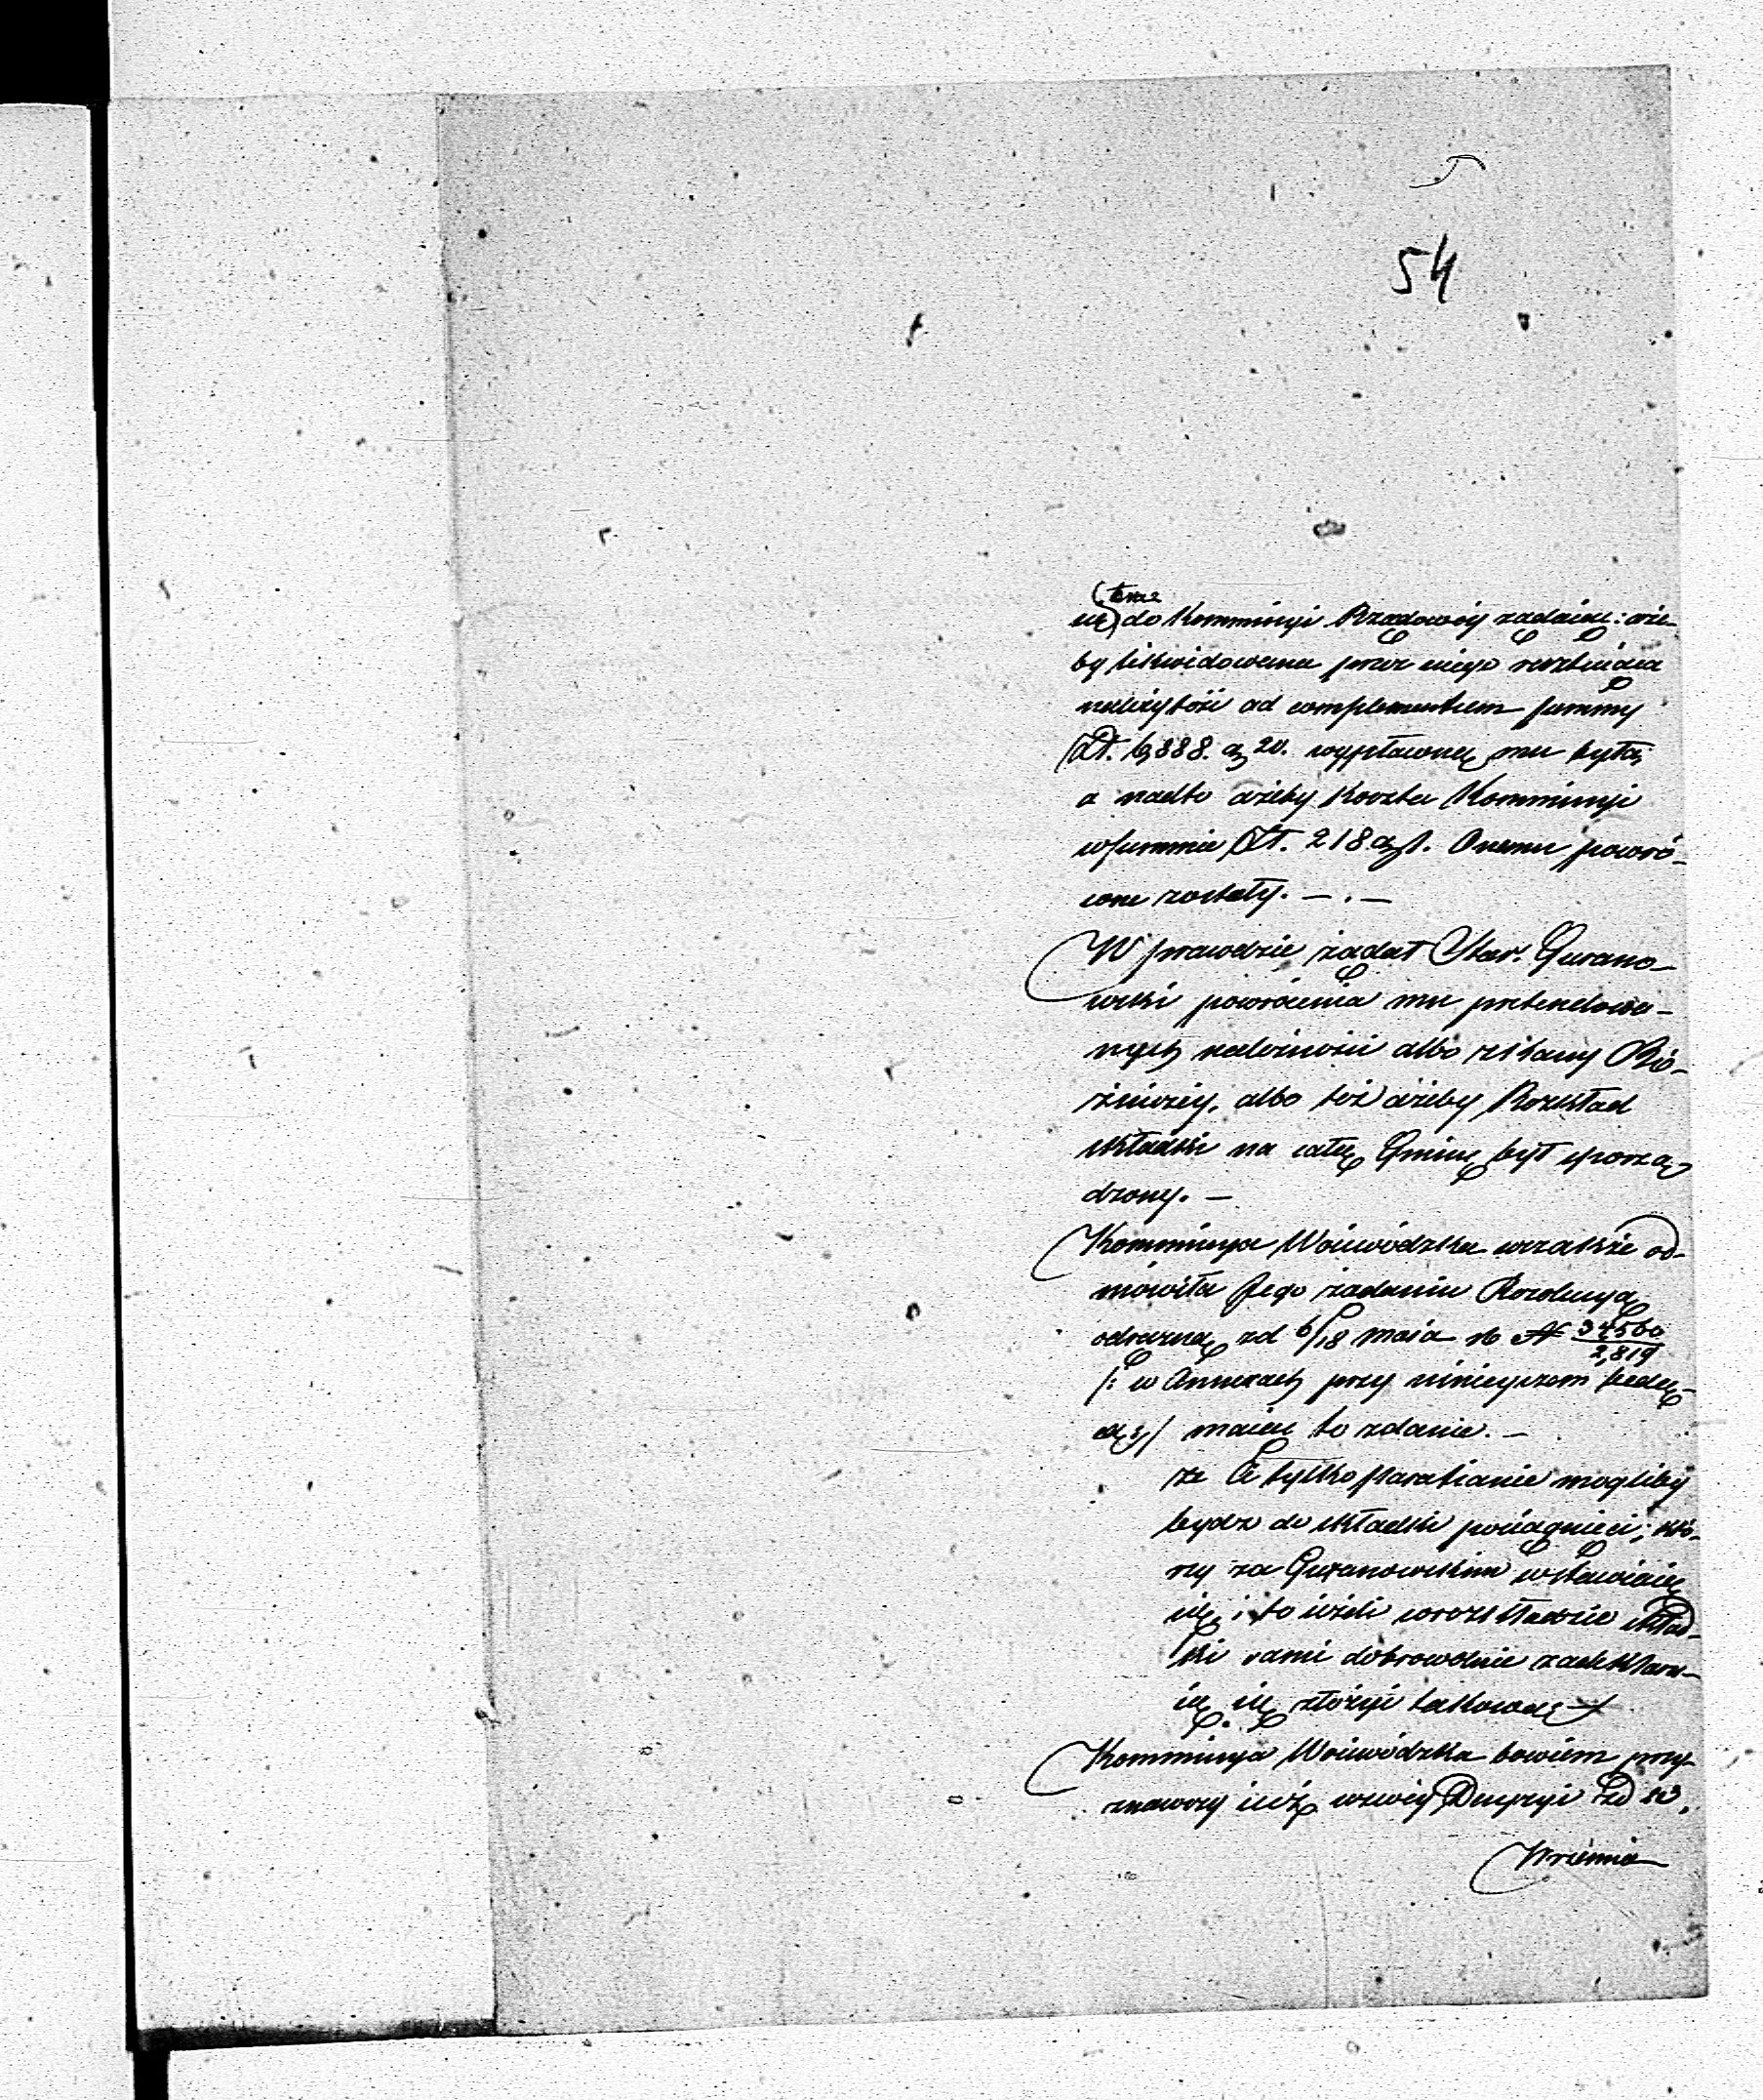 54
teraz
się do Kommissyi Rządowéy żądaiąc: aże-
by likwidowana przez niego resztuiąca
należytość ad complementum summy
Zł. 6,888. g 20. wypłaconą mu była,
a nadto ażeby koszta Kommissyi
w summie Zł. 218 g 1. Onemu powró-
cone zostały. — . —
Wprawdzie żądał Star. Gurano-
wski powrócenia mu pretendowa-
nych należności albo z Kassy Bó-
żniczéy, albo też ażeby Rozkład
składki na całą Gminę był sporzą-
dzony. —
Kommissya Woiewódzka wszakże od-
mówiła Jego żądaniu Rezolucyą
odręczną z d 6/18 Maia rb N 34560/2,819
/: w Annexach przy ninieyszem będą-
cą :/ maiąc to zdanie. —
że Ci tylko parafianie mogliby
bydź do składki pociągnięci; któ-
rzy za Guranowskim wstawiaią
się, i to ieżeli w rozkładzie skład-
ki sami dobrowolnie zadeklaru-
ią się złożyć takową.
Kommissya Woiewódzka bowiem przy-
znawszy iuż w swéy Decyzyi z d 23,
Września